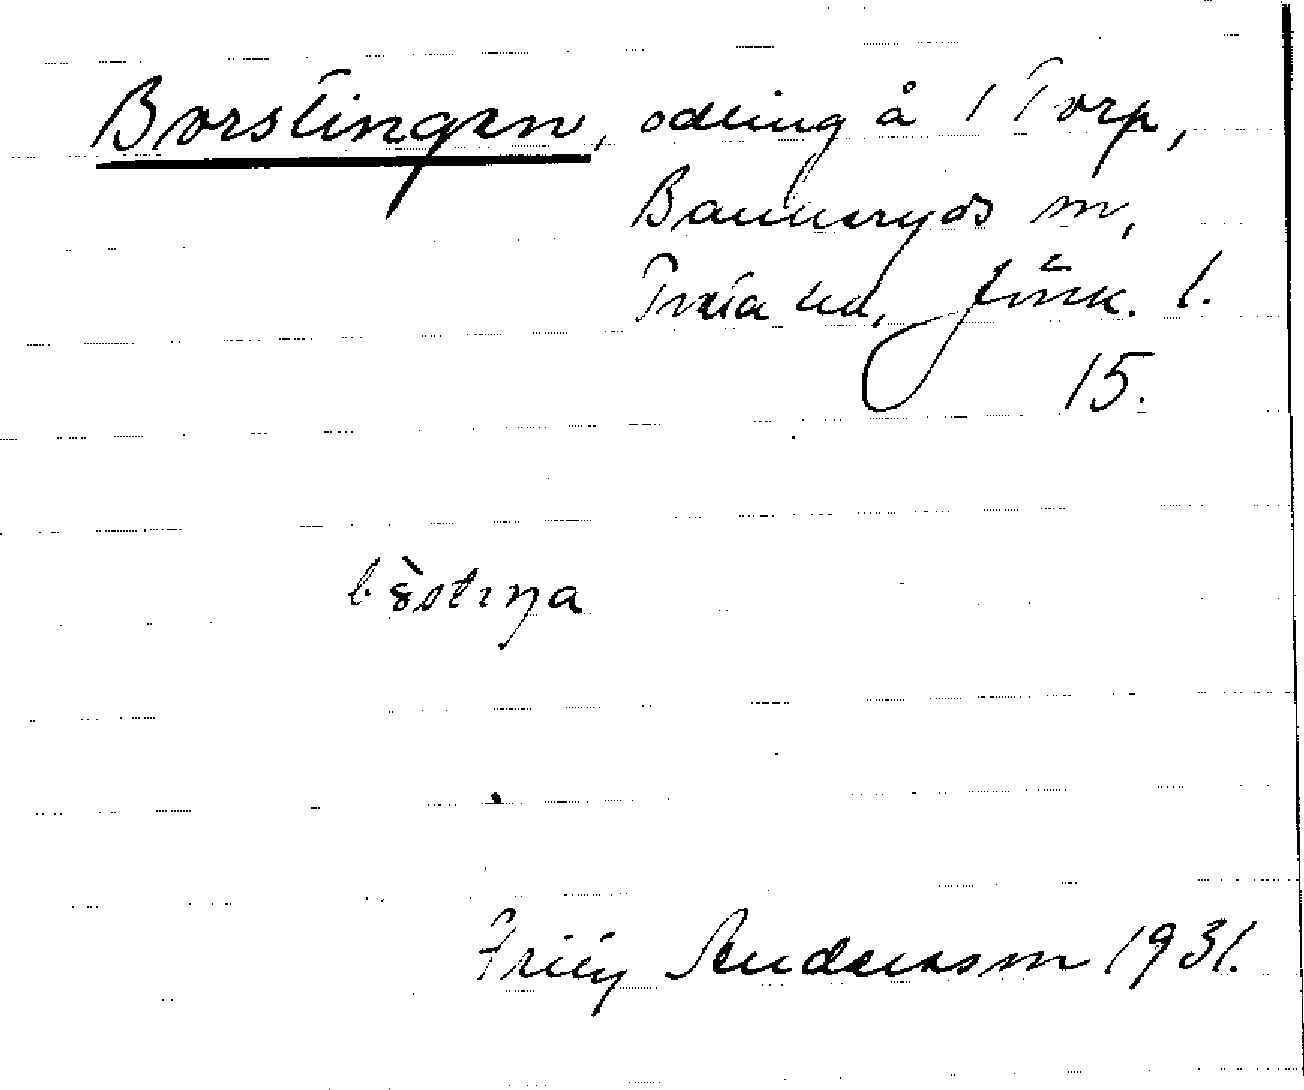 Borstingen, odling å 1 Torp,
Bankeryds sn,
Tveta hd, Jönk. l.
15.
bs̀stıŋa
Fritz Andersson 1931.